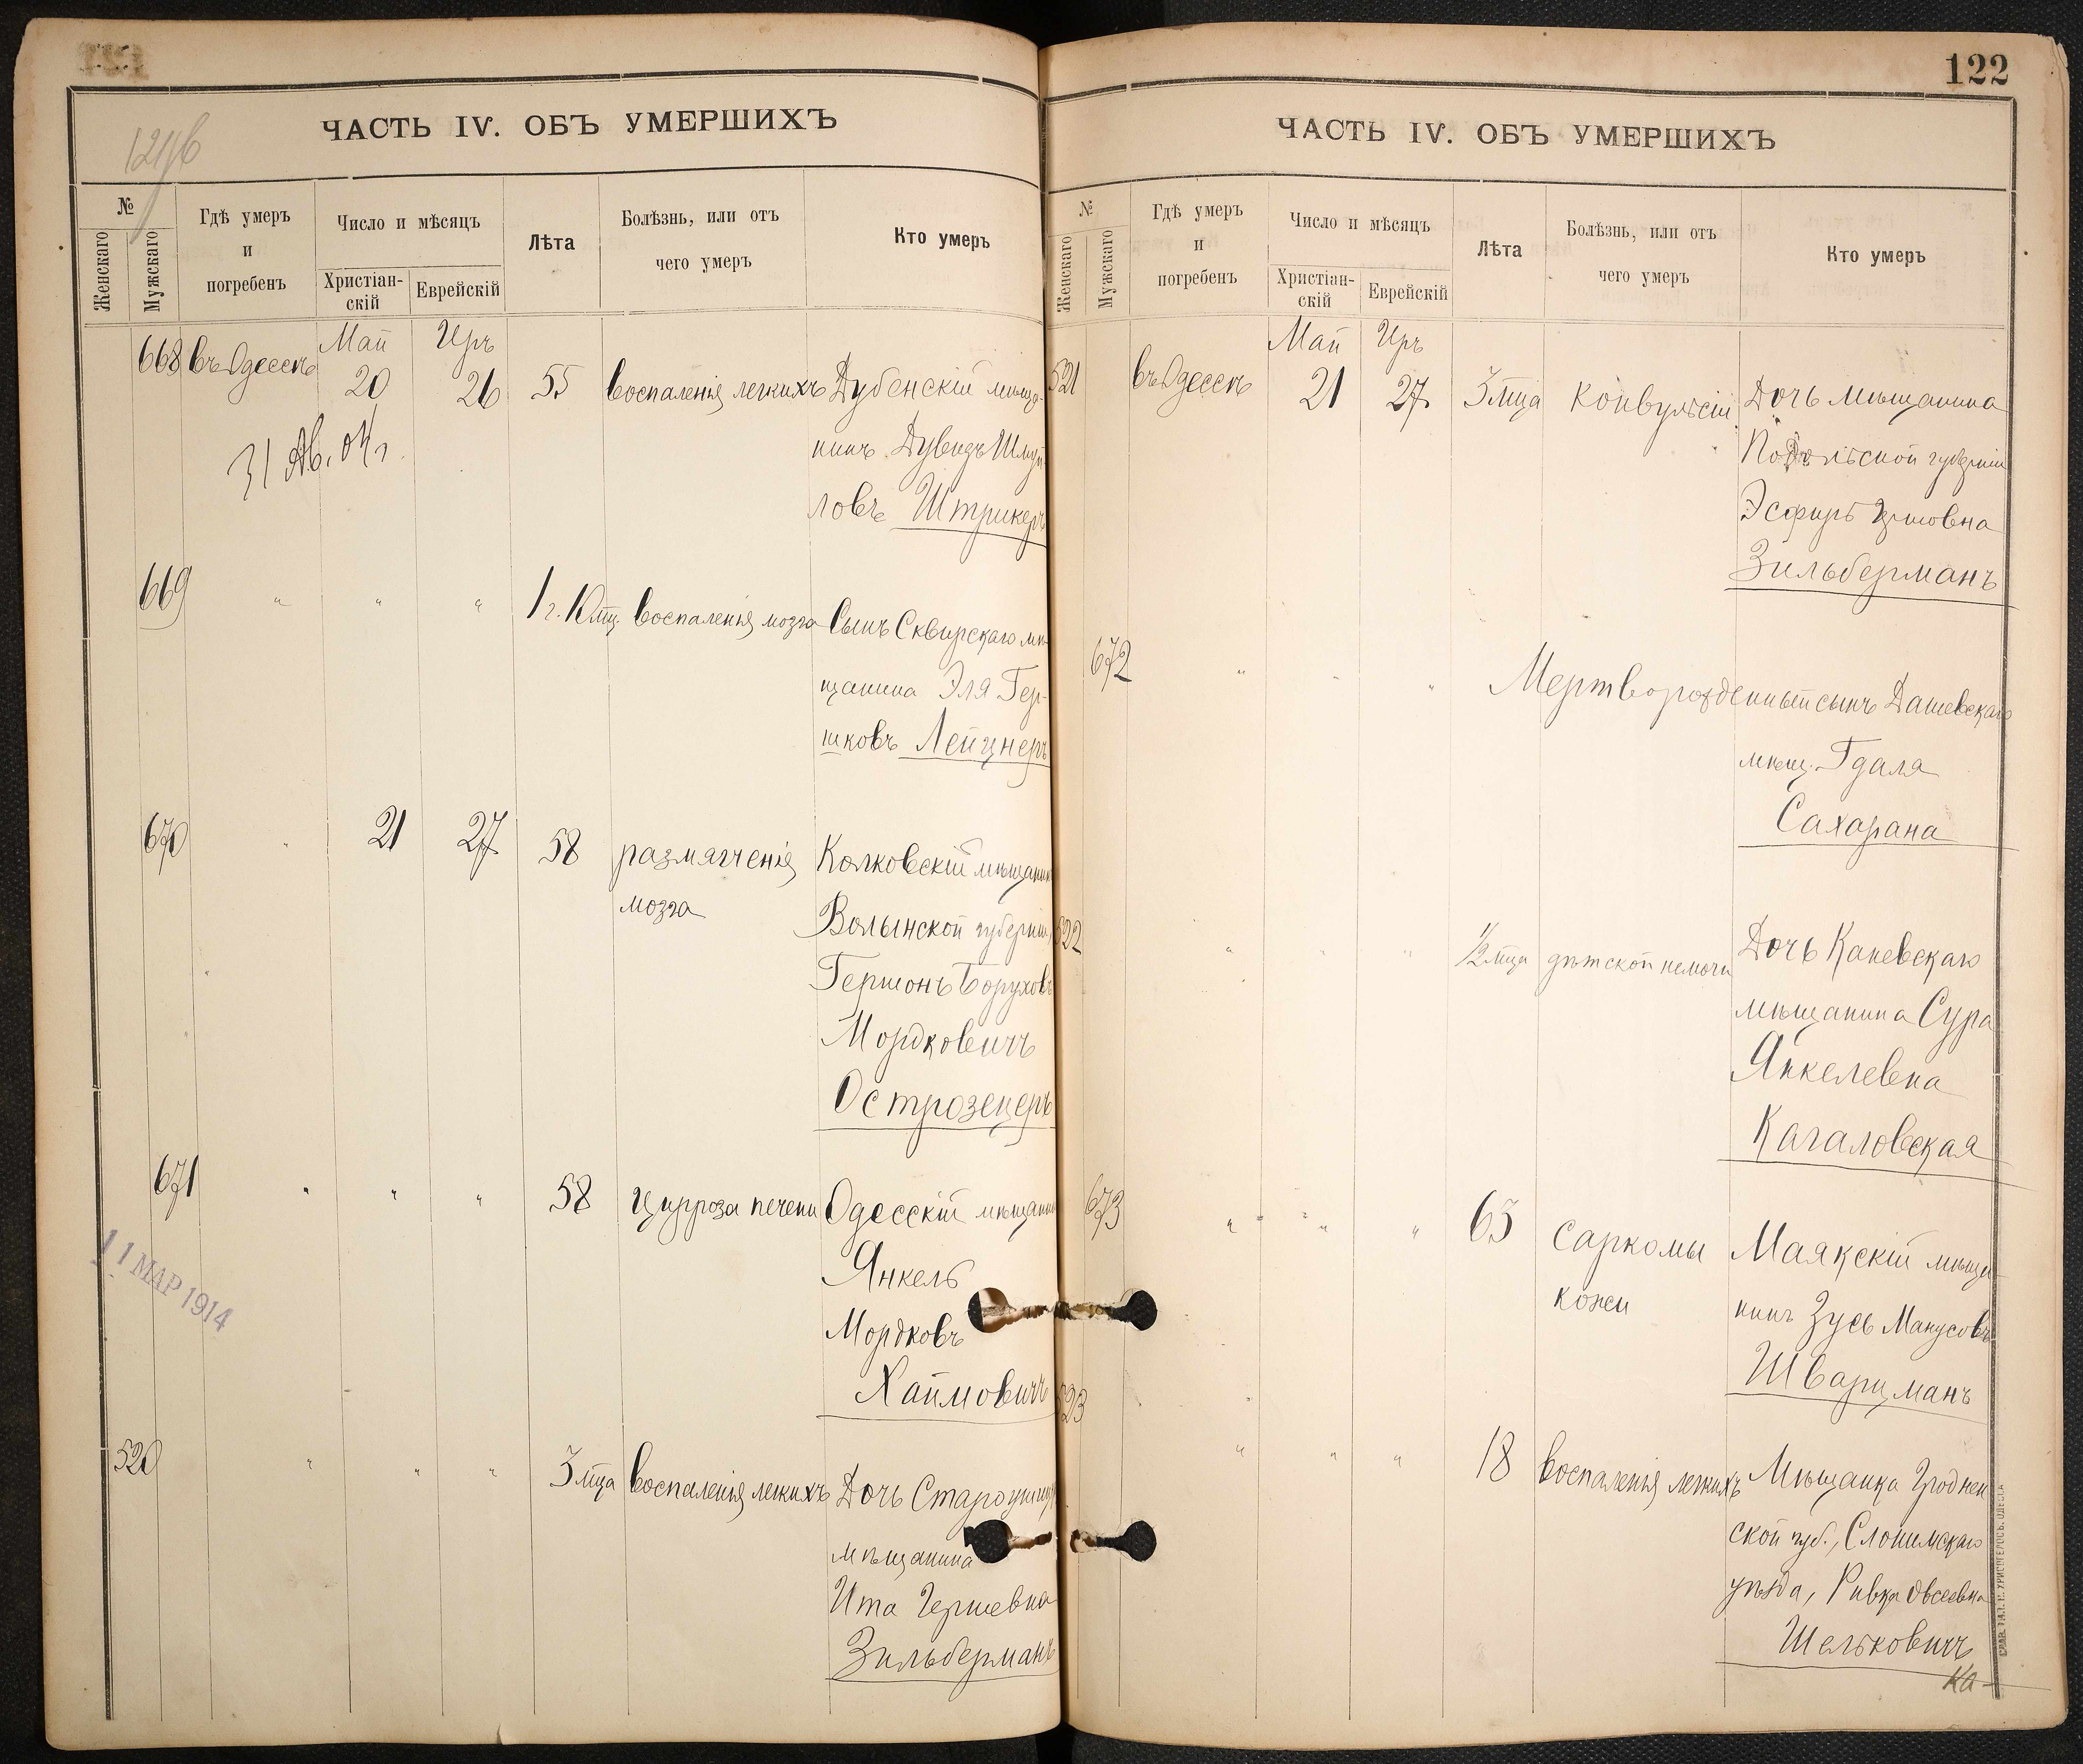 ЧАСТЬ IV. ОБЪ УМЕРШИХЪ
№
Женскаго
Мужскаго
Гдѣ умеръ
и
погребенъ
Число и мѣсяцъ
Христіан-
скій
Еврейскій
Лѣта
Болѣзнь, или отъ
чего умеръ
Кто умеръ
Май Иръ
668 въ Одессѣ 20 26 55 воспаленія легкихъ Дубенскій мѣща-
нинъ Дувидъ Шмуй
ловъ Штрикеръ
31 Ав. 04 г.
669 " " " 1 г. 10 мц. воспаленія мозга Сынъ Сквирскаго мѣ-
щанина Эля Гер-
шковъ Лейцнеръ
670 " 21 27 58 размягченія Колковскій мѣщанинъ
мозга Волынской губерніи,
Гершонъ Боруховъ
Мордковичъ
Острозецеръ
671 " " " 58 цирроза печени Одесскій мѣщанин
Янкель
Мордковъ
Хаймовичъ
11 МАР 1914
520 " " " 3 мца воспаленія легкихъ Дочь
мѣщанина
Ита Гершевна
Зильберманъ
122
ЧАСТЬ IV. ОБЪ УМЕРШИХЪ
№
Женскаго
Мужскаго
Гдѣ умеръ
и
погребенъ
Число и мѣсяцъ
Христіан-
скій
Еврейскій
Лѣта
Болѣзнь, или отъ
чего умеръ
Кто умеръ
Май Иръ
521 въ Одессѣ 21 27 3 мца Конвульсій Дочь мѣщанина
Подольской губерніи
Эсфирь
Зильберманъ
672 " " " Мертворожденный сынъ Дашевскаго
мѣщ. Гдаля
Сахарана
522 " " " 1/2 мца дѣтской немочи Дочь Каневскаго
мѣщанина Сура
Янкелевна
Кагаловская
673 " " " 63 саркомы Маякскій мѣща-
кожи нинъ Зусь Манусовъ
Шварцманъ
523 " " " 18 воспаленія легкихъ Мѣщанка Гроднен
ской губ., Слонимскаго
уѣзда, Ривка Овсеевна
Шельковичъ
Ка